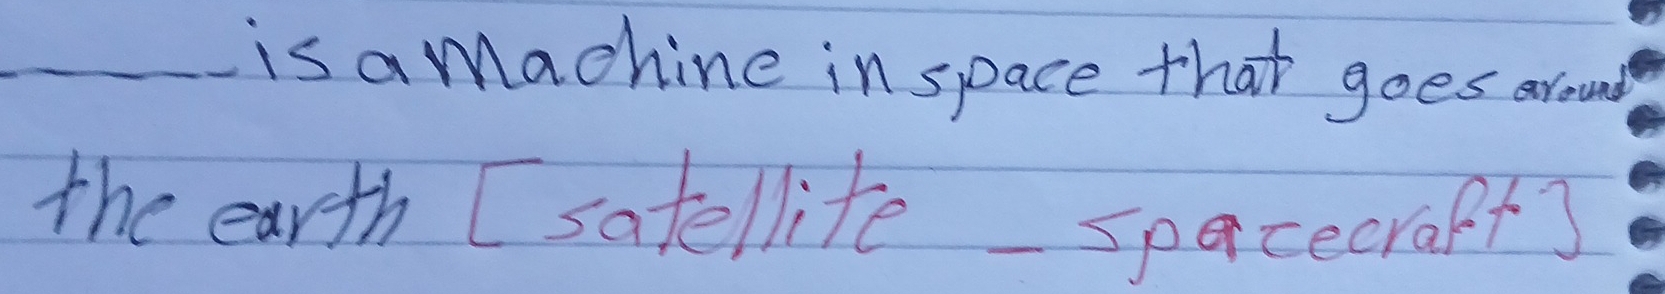 _____ is a machine in space that goes around
the earth [ satellite _ spacecraft ]